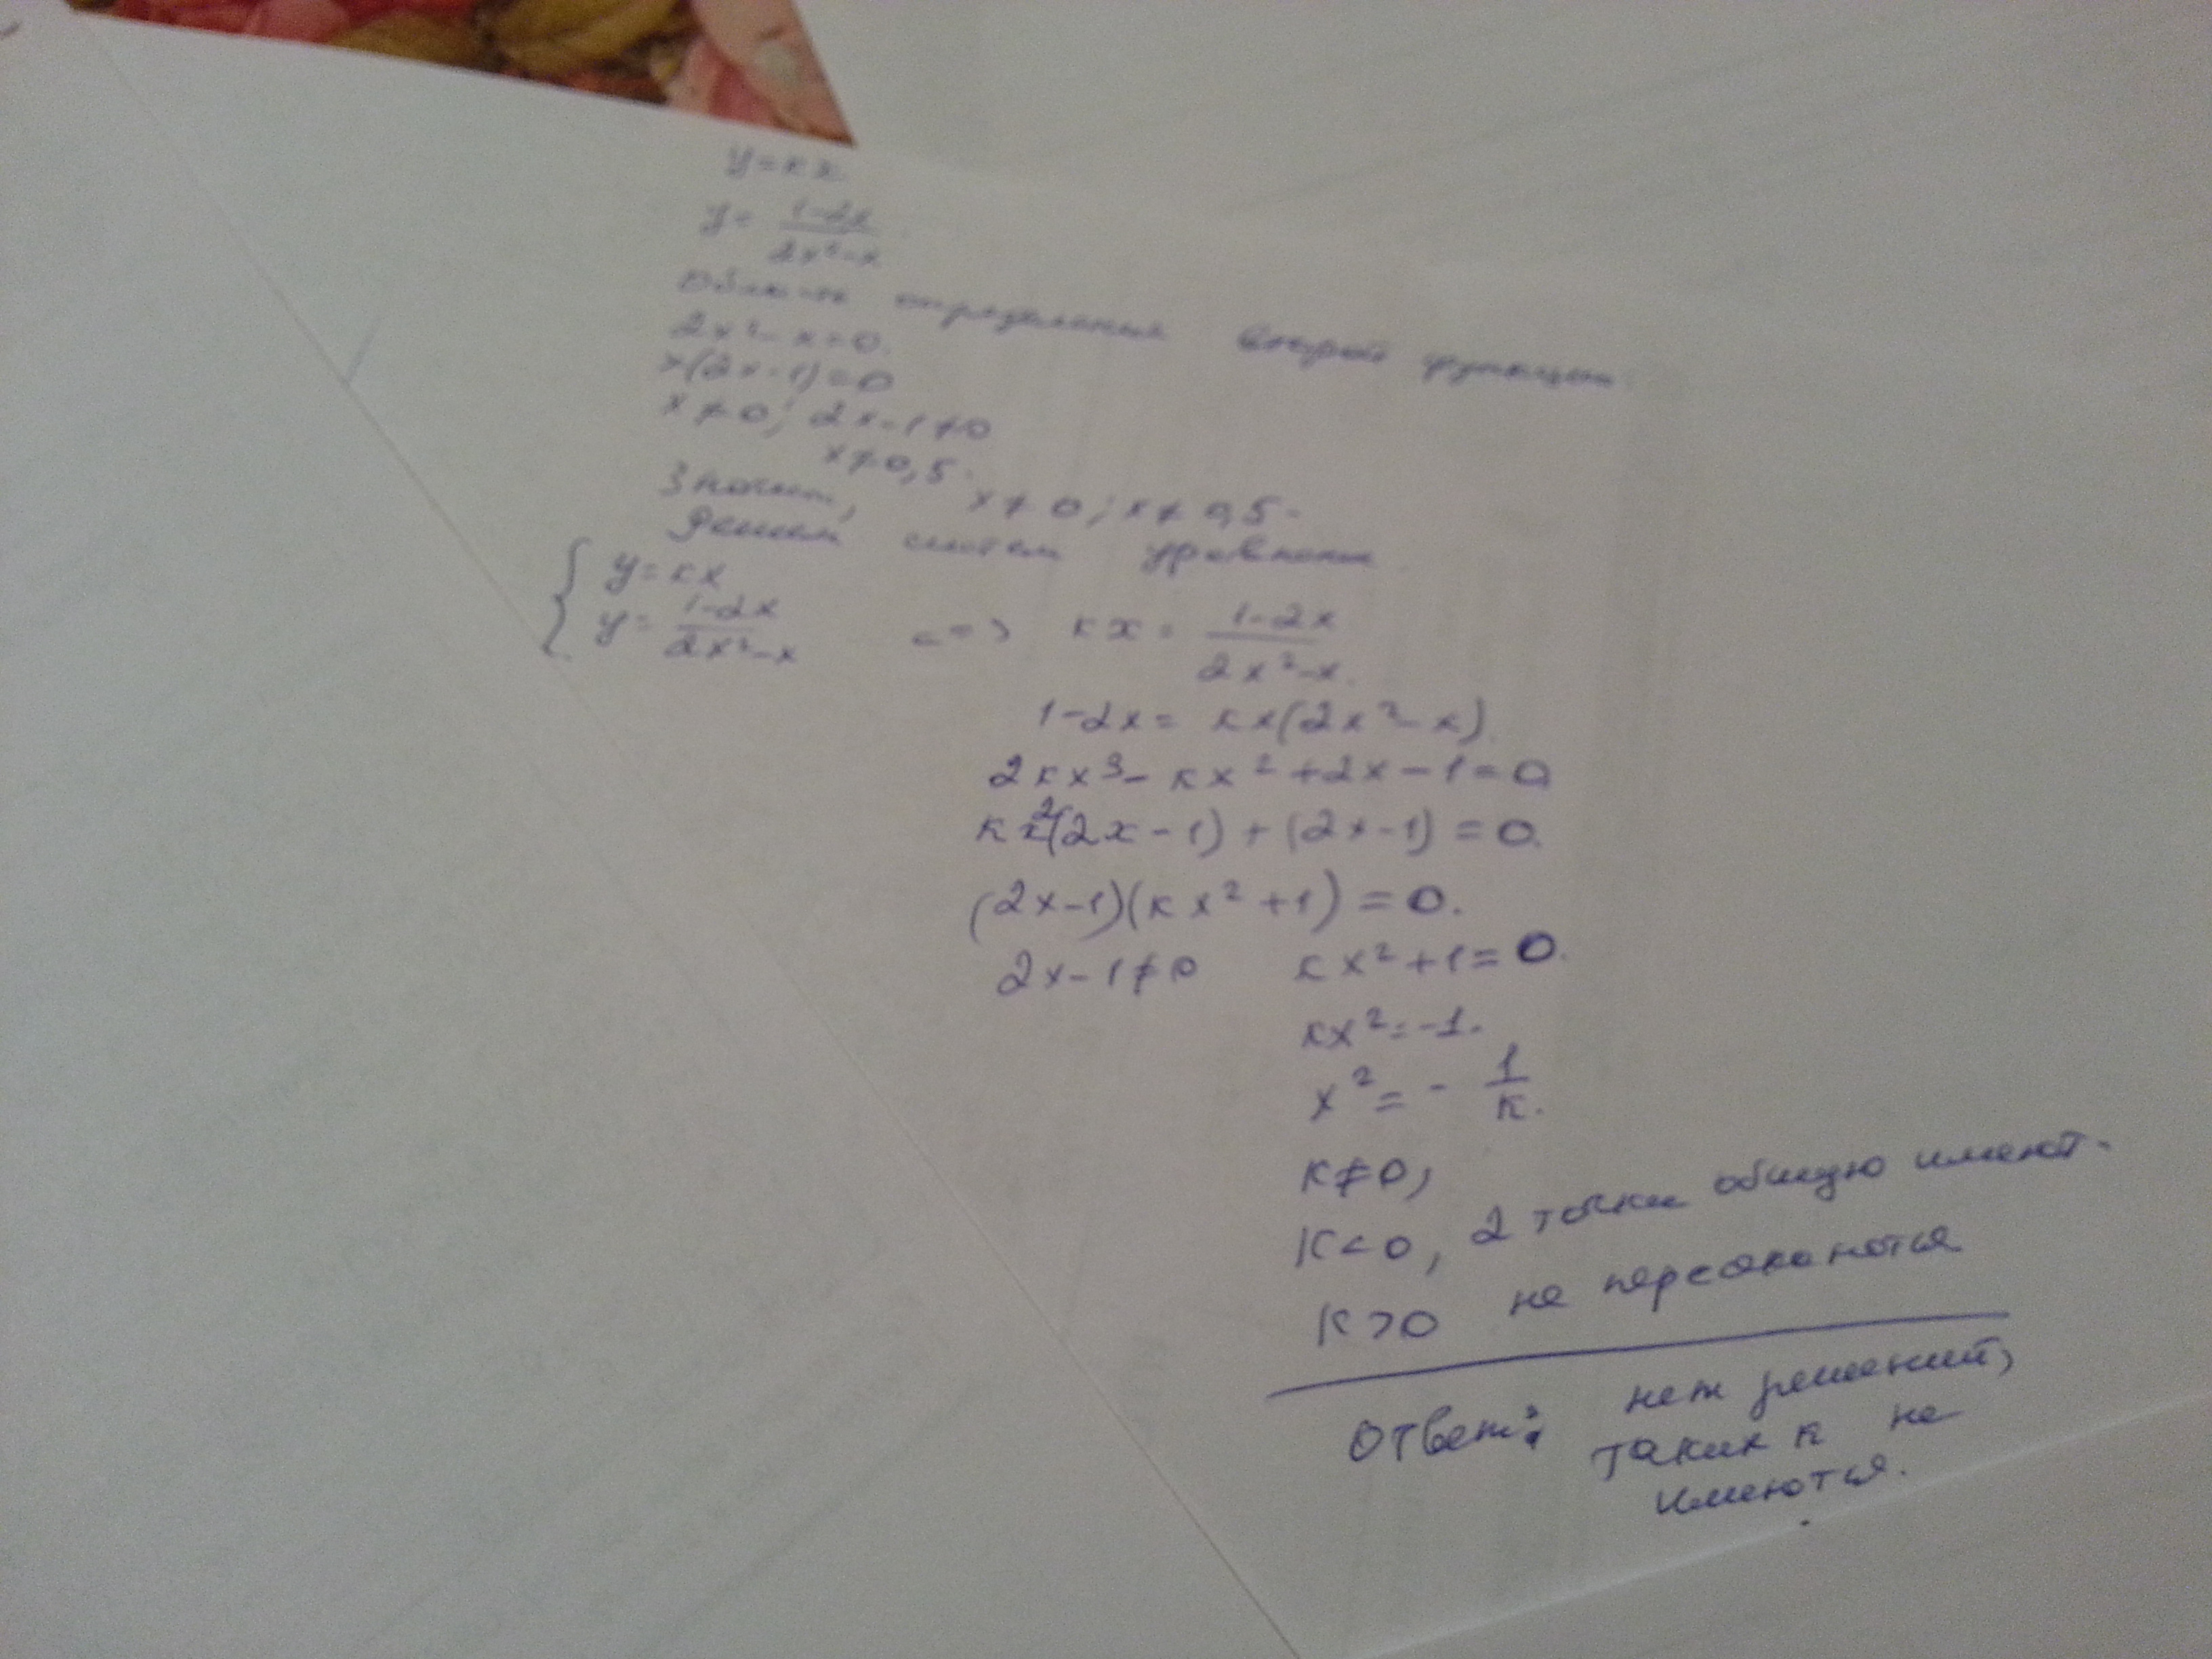 y=кx
y= (1-2x)/(2x²-x)
Область определения второй функции
2x²-x=0.
x(2x-1)=0
x≠0; 2x-1≠0
x≠0,5.
Значит, x≠0; x≠0,5.
Решем систем уравнение
{ y=кx
y= (1-2x)/(2x²-x) <=> кx = (1-2x)/(2x²-x).
1-2x= кx(2x²-x)
2кx³-кx²+2x-1=0
кx²(2x-1)+(2x-1)=0.
(2x-1)(кx²+1)=0.
2x-1≠0 кx²+1=0.
кx²=-1.
x²= - 1/к.
к≠0,
к<0, 2 точки общую имеют.
к>0 не персекаются
Ответ: нет решений,
таких к не
имеются.